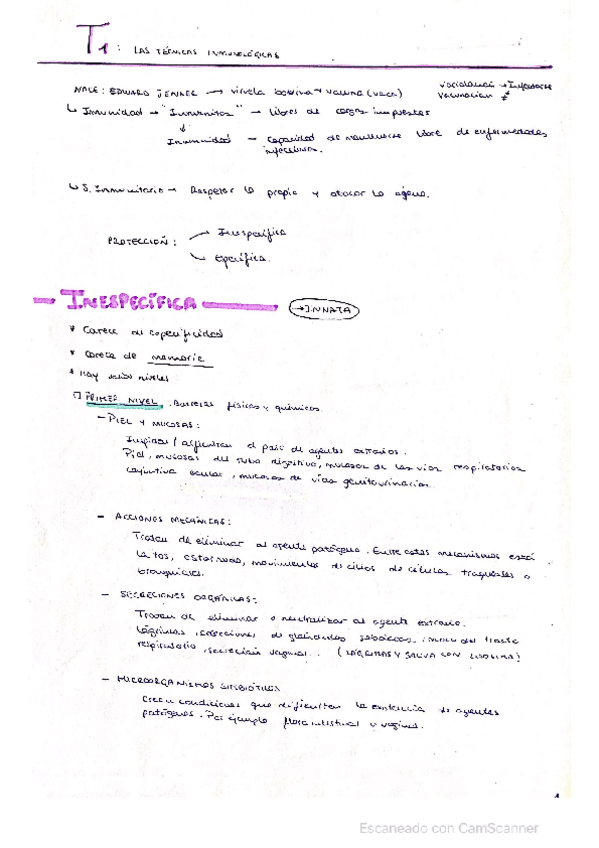 T1: LAS TÉCNICAS INMUNOLÓGICAS
NACE: EDWARD JENNER → viruela bovina → vacuna (vaca)
variolización → Infectarse
vacunación ≠
↳ Inmunidad → "Inmunitas" → libres de cargas impuestas
↓
Inmunidad → capacidad de mantenerse libre de enfermedades
infecciosas.
↳ S. Inmunitario → Respetar lo propio y atacar lo ajeno.
PROTECCIÓN:
→ Inespecífica
→ Específica.
INESPECÍFICA
→ INNATA
* Carece de especificidad
* Carece de memoria
* Hay varios niveles
PRIMER NIVEL. Barreras físicas y químicas
- PIEL Y MUCOSAS:
Impiden / dificultan el paso de agentes extraños.
Piel, mucosas del tubo digestivo, mucosas de las vías respiratorias
conjuntiva ocular, mucosas de vías genitourinarias.
- ACCIONES MECÁNICAS:
Tratan de eliminar al agente patógeno. Entre estos mecanismos está
la tos, estornudo, movimientos de cilios de células traqueales o
bronquiales.
- SECRECIONES ORGÁNICAS:
Tratan de eliminar o neutralizar al agente extraño.
Lágrimas, secreciones de glándulas sebáceas, moco del tracto
respiratorio, secreción vaginal.. (LÁGRIMAS Y SALIVA CON LISOZIMA)
- MICROORGANISMOS SIMBIÓTICOS
Crean condiciones que dificultan la existencia de agentes
patógenos. Por ejemplo flora intestinal o vaginal.
1
Escaneado con CamScanner